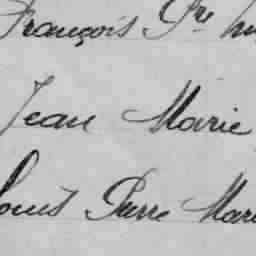 François Pre
Jean Marie
Louis Pierre Mari